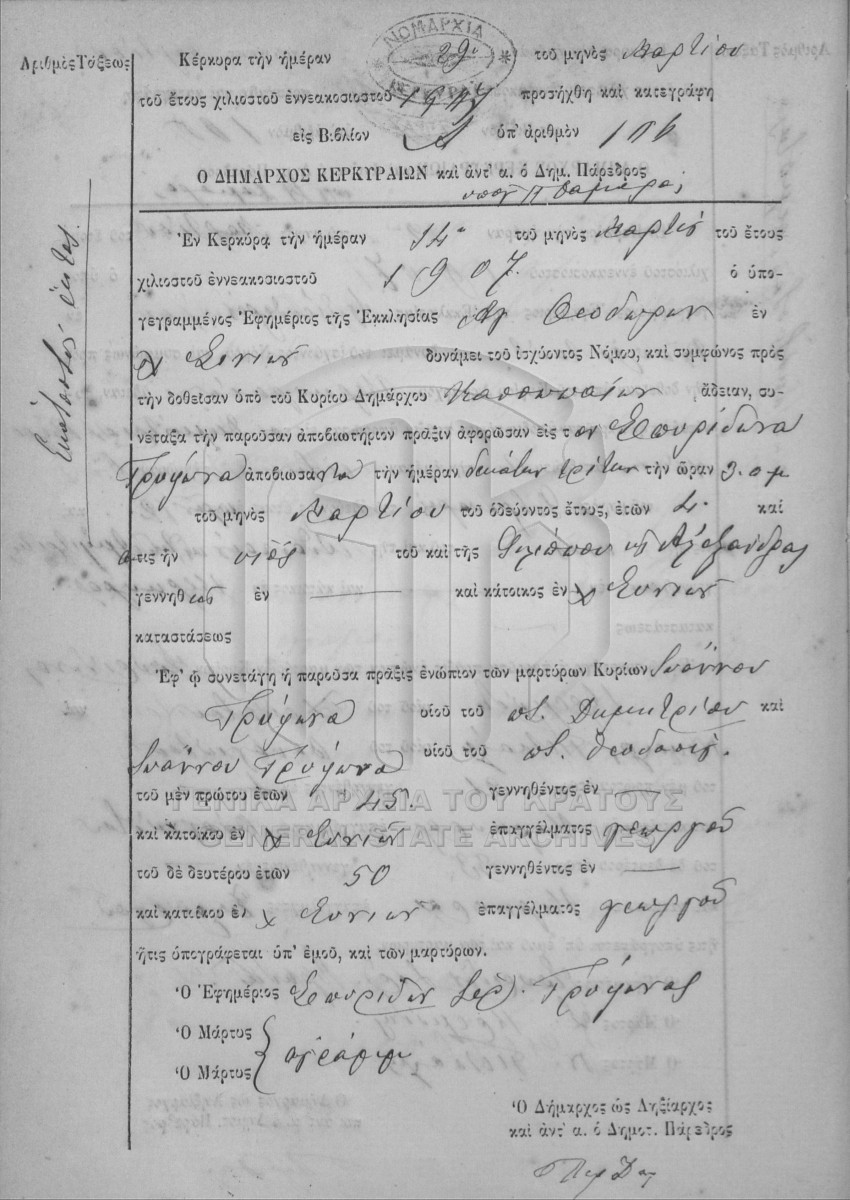 ΝΟΜΑΡΧΙΑ
Ἀριθμὸς Τάξεως
Κέρκυρα τὴν ἡμέραν 29 τοῦ μηνὸς Μαρτίου
τοῦ ἔτους χιλιοστοῦ ἐννεακοσιοστοῦ προσήχθη καὶ κατεγράφη
εἰς Βιβλίον Α ὑπ' ἀριθμὸν 106
Ο ΔΗΜΑΡΧΟΣ ΚΕΡΚΥΡΑΙΩΝ καὶ ἀντ' α. ὁ Δημ. Πάρεδρος
Ἑκατοστὸν ἕκτος.
Ἐν Κερκύρᾳ τὴν ἡμέραν 14 τοῦ μηνὸς Μαρτίου τοῦ ἔτους
χιλιοστοῦ ἐννεακοσιοστοῦ 1907. ὁ ὑπο-
γεγραμμένος Ἐφημέριος τῆς Ἐκκλησίας Αγ Θεοδωρων ἐν
χ Ξυνιων δυνάμει τοῦ ἰσχύοντος Νόμου, καὶ συμφώνος πρὸς
τὴν δοθεῖσαν ὑπὸ τοῦ Κυρίου Δημάρχου Κασσωπαίων ἄδειαν, συ-
νέταξα τὴν παροῦσαν ἀποβιωτήριον πρᾶξιν ἀφορῶσαν εἰς τον Σπυρίδωνα
Τρύφωνα ἀποβιώσαντα τὴν ἡμέραν δεκάτην τρίτην τὴν ὥραν 3. π μ
τοῦ μηνὸς Μαρτίου τοῦ ὁδεύοντος ἔτους, ἐτῶν 4. καὶ
στις ἦν υιός τοῦ καὶ τῆς Φιλίππου κ Αλεξάνδρας
γεννηθεις ἐν — καὶ κάτοικος ἐν χ Ξυνιων
καταστάσεως
Ἐφ' ᾧ συνετάγη ἡ παροῦσα πρᾶξις ἐνώπιον τῶν μαρτύρων Κυρίων Ιωάννου
Τρύφωνα υἱοῦ τοῦ ποτ. Δημητρίου καὶ
Ιωάννου Τρύφωνα υἱοῦ τοῦ ποτ. Θεοδοσίου.
τοῦ μὲν πρώτου ἐτῶν 45. γεννηθέντος ἐν —
ΓΕΝΙΚΑ ΑΡΧΕΙΑ ΤΟΥ ΚΡΑΤΟΥΣ
καὶ κατοίκου ἐν χ Ξυνιων ἐπαγγέλματος γεωργοῦ
GENERAL STATE ARCHIVES
τοῦ δὲ δευτέρου ἐτῶν 50 γεννηθέντος ἐν —
καὶ κατοίκου ἐν χ Ξυνιων ἐπαγγέλματος γεωργοῦ
ἥτις ὑπογράφεται ὑπ' ἐμοῦ, καὶ τῶν μαρτύρων.
Ὁ Ἐφημέριος Σπυρίδων Ιερ. Τρύφωνας
Ὁ Μάρτυς
αγράμμ
Ὁ Μάρτυς
Ὁ Δήμαρχος ὡς Ληξίαρχος
καὶ ἀντ' α. ὁ Δημοτ. Πάρεδρος